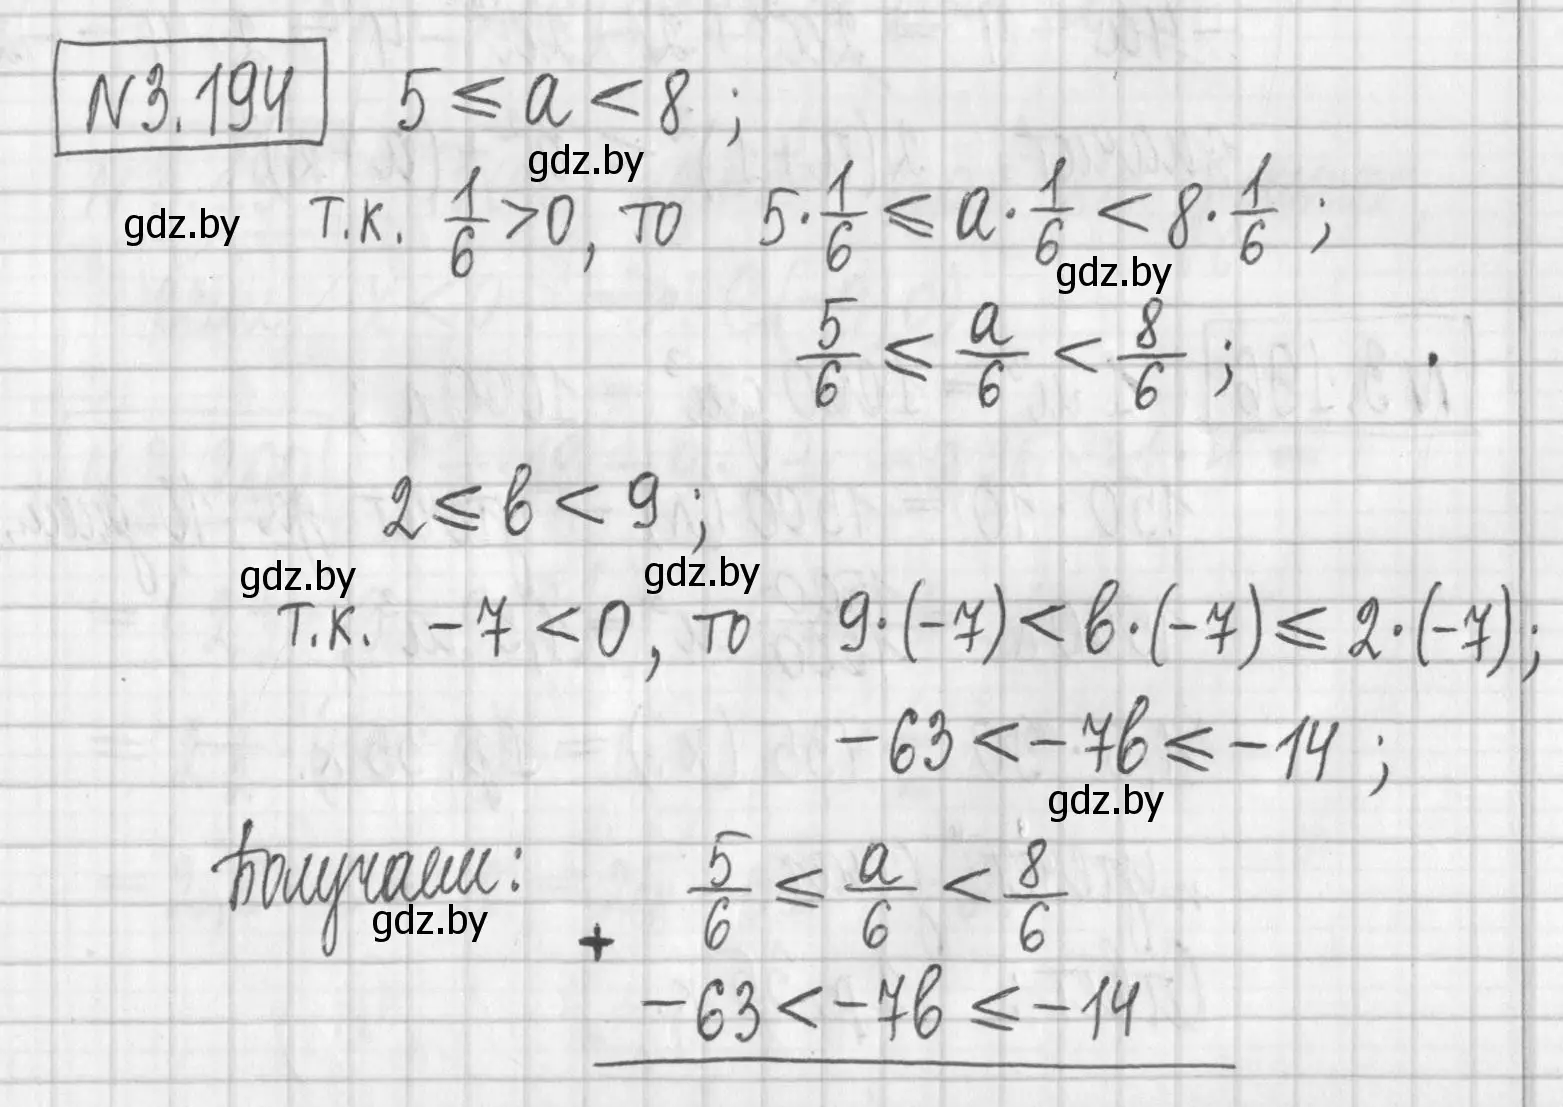 N3.194 5 ≤ a < 8 ;
gdz.by
gdz.by т.к. 1/6 > 0, то 5·1/6 ≤ a·1/6 < 8·1/6 ;
gdz.by
5/6 ≤ a/6 < 8/6 ;
2 ≤ в < 9 ;
gdz.by gdz.by
т.к. -7 < 0, то 9·(-7) < в·(-7) ≤ 2·(-7) ;
-63 < -7в ≤ -14 ;
gdz.by
Получаем: 5/6 ≤ a/6 < 8/6
gdz.by
+
-63 < -7в ≤ -14